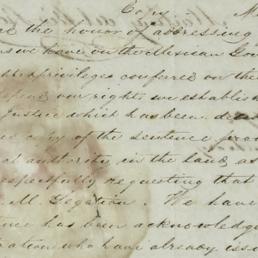 Copy M
the honor of addressing
we have on the Mexican Gov
privileges conferred on the
our rights we establish
Justice which has been
copy of the sentence
authority in the land as
respectfully requesting that
M. Legation. We have
has been acknowledge
who have already issu